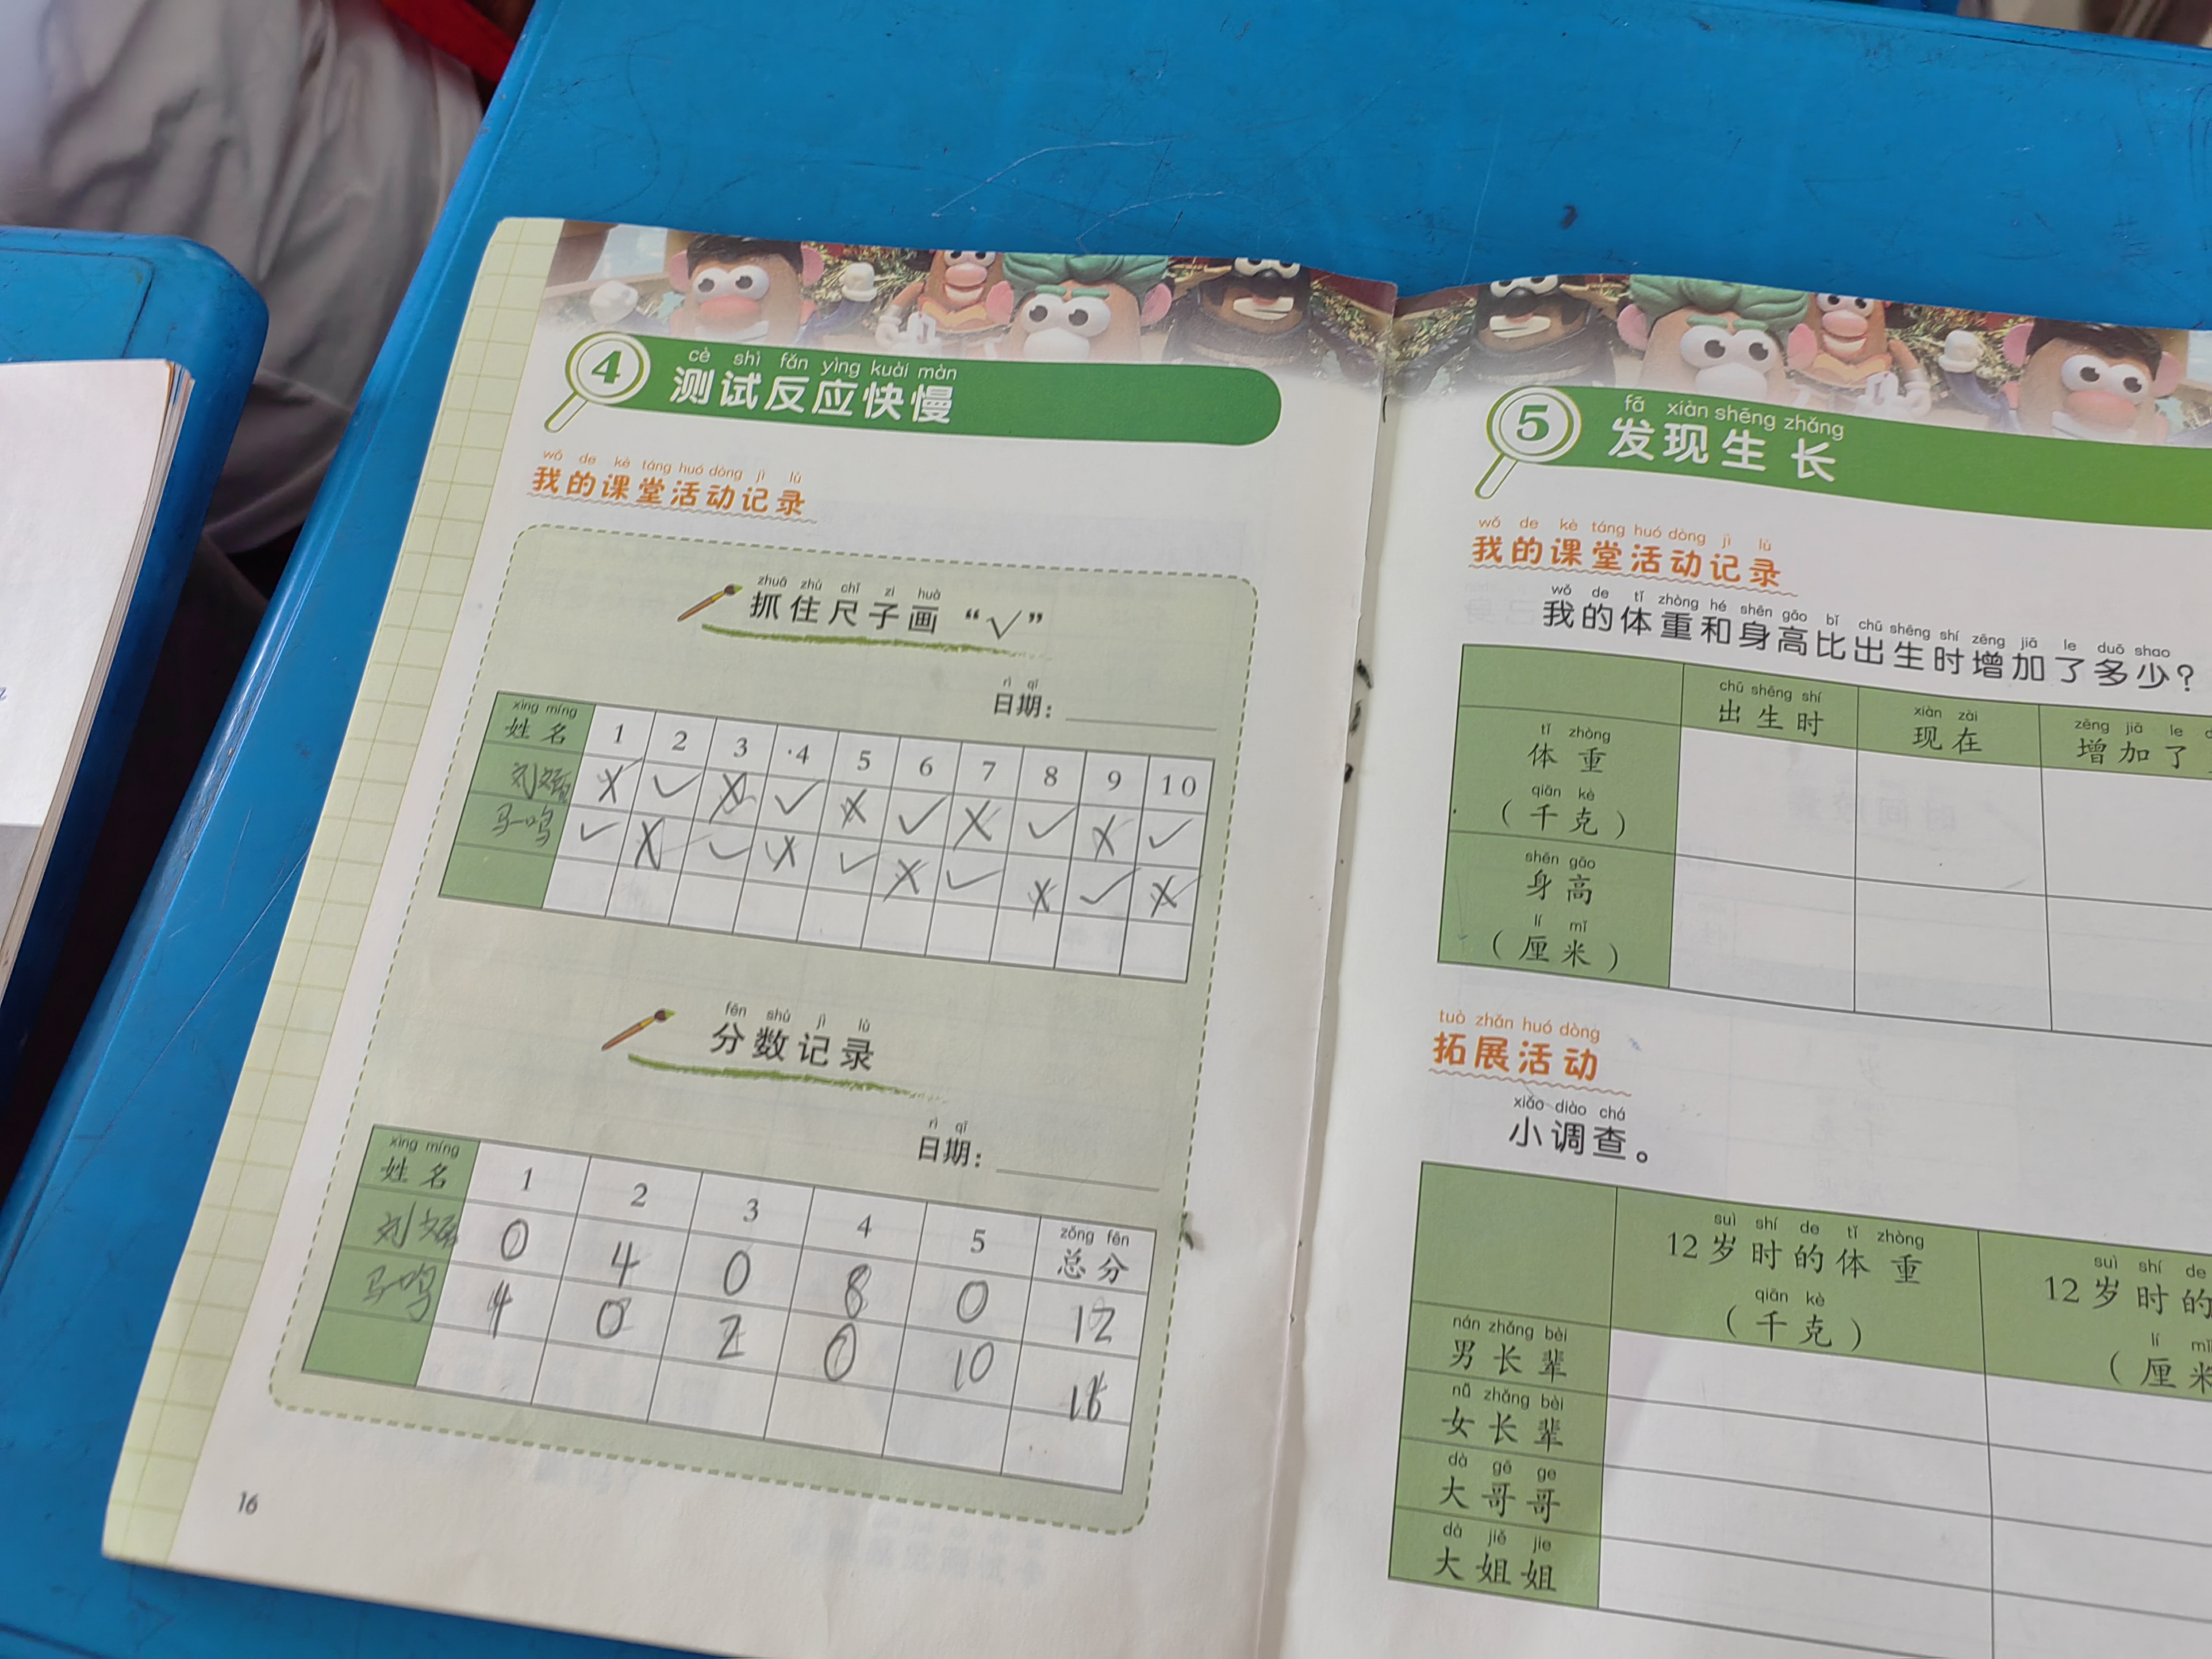 4
cè shì fǎn yìng kuài màn
测试反应快慢
wǒ de kè táng huó dòng jì lù
我的课堂活动记录
zhuā zhù chǐ zi huà
抓住尺子画“√”
rì qī
日期：
xìng míng
姓名 1 2 3 4 5 6 7 8 9 10
刘 × ✓ × ✓ × ✓ × ✓ × ✓
马一鸣 ✓ × ✓ × ✓ × ✓ × ✓ ×
fēn shù jì lù
分数记录
rì qī
日期：
xìng míng zǒng fēn
姓名 1 2 3 4 5 总分
刘 0 4 0 8 0 12
马一鸣 4 0 2 0 10 16
16
5
fā xiàn shēng zhǎng
发现生长
wǒ de kè táng huó dòng jì lù
我的课堂活动记录
wǒ de tǐ zhòng hé shēn gāo bǐ chū shēng shí zēng jiā le duō shao
我的体重和身高比出生时增加了多少？
chū shēng shí xiàn zài zēng jiā le
出生时 现在 增加了
tǐ zhòng
体重
qiān kè
（千克）
shēn gāo
身高
lí mǐ
（厘米）
tuò zhǎn huó dòng
拓展活动
xiǎo diào chá
小调查。
suì shí de tǐ zhòng suì shí de
12岁时的体重 12岁时的
qiān kè lí mǐ
（千克） （厘米
nán zhǎng bèi
男长辈
nǚ zhǎng bèi
女长辈
dà gē ge
大哥哥
dà jiě jie
大姐姐